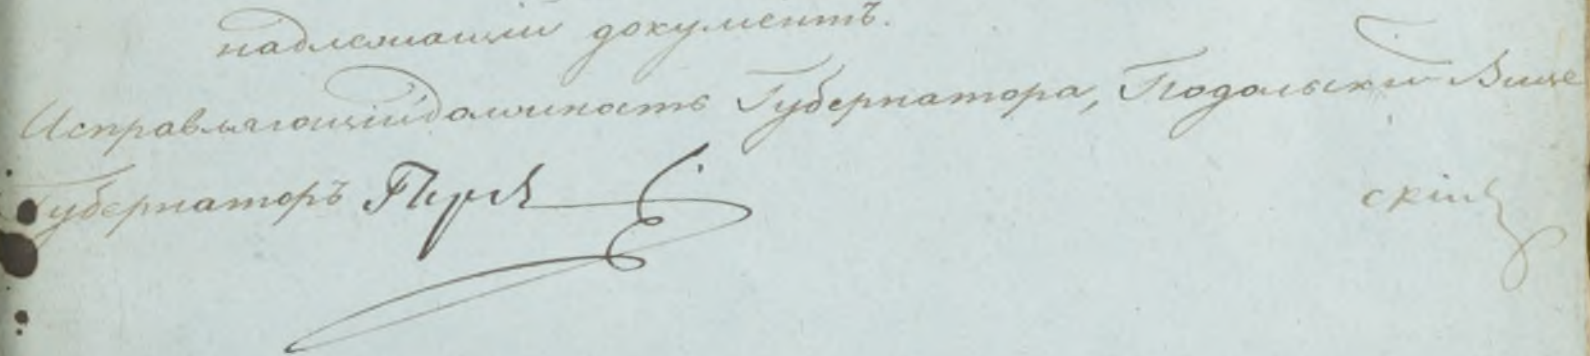 надлежащій документъ.
Исправляющій должность Губернатора, Подольскій Вице
Губернаторъ
скій